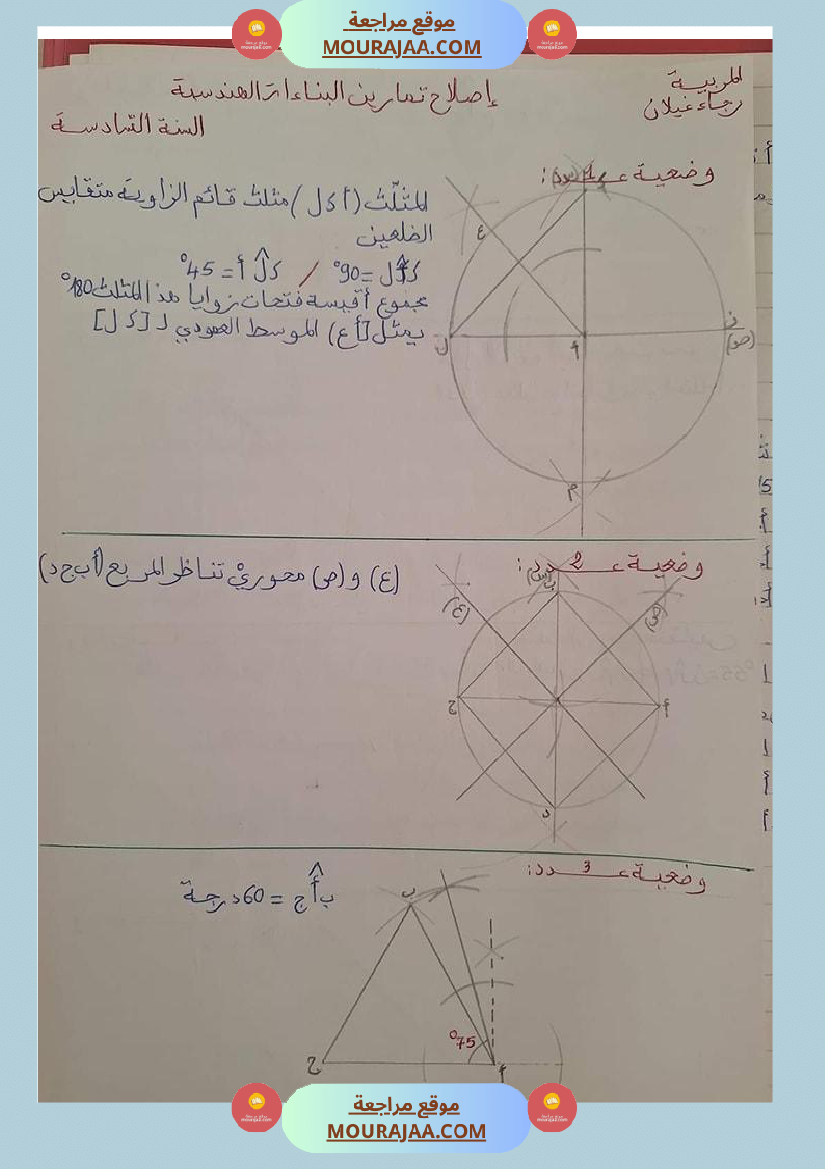 موقع مراجعة
MOURAJAA.COM
المربية
رجاء غيلان
إصلاح تمارين البناءات الهندسية
السنة السّادسة
وضعية عـ1ـدد:
المثلّث (أ ك ل) مثلث قائم الزاوية متقايس
الضلعين
ك أ ل = 90° / ك ل أ = 45°
مجموع أقيسة فتحات زوايا هذا المثلث 180°
يمثل [أ ع) الموسط العمودي لـ [ك ل]
ع
ل
أ
ن
(ص)
م
وضعية عـ2ـدد:
(ع) و (ص) محوريْ تناظر المربع (أ ب ج د)
(س)
ب
(ع)
(ص)
ج
أ
د
وضعية عـ3ـدد:
ب أ ج = 60 درجة
ب
75°
ج
أ
موقع مراجعة
MOURAJAA.COM